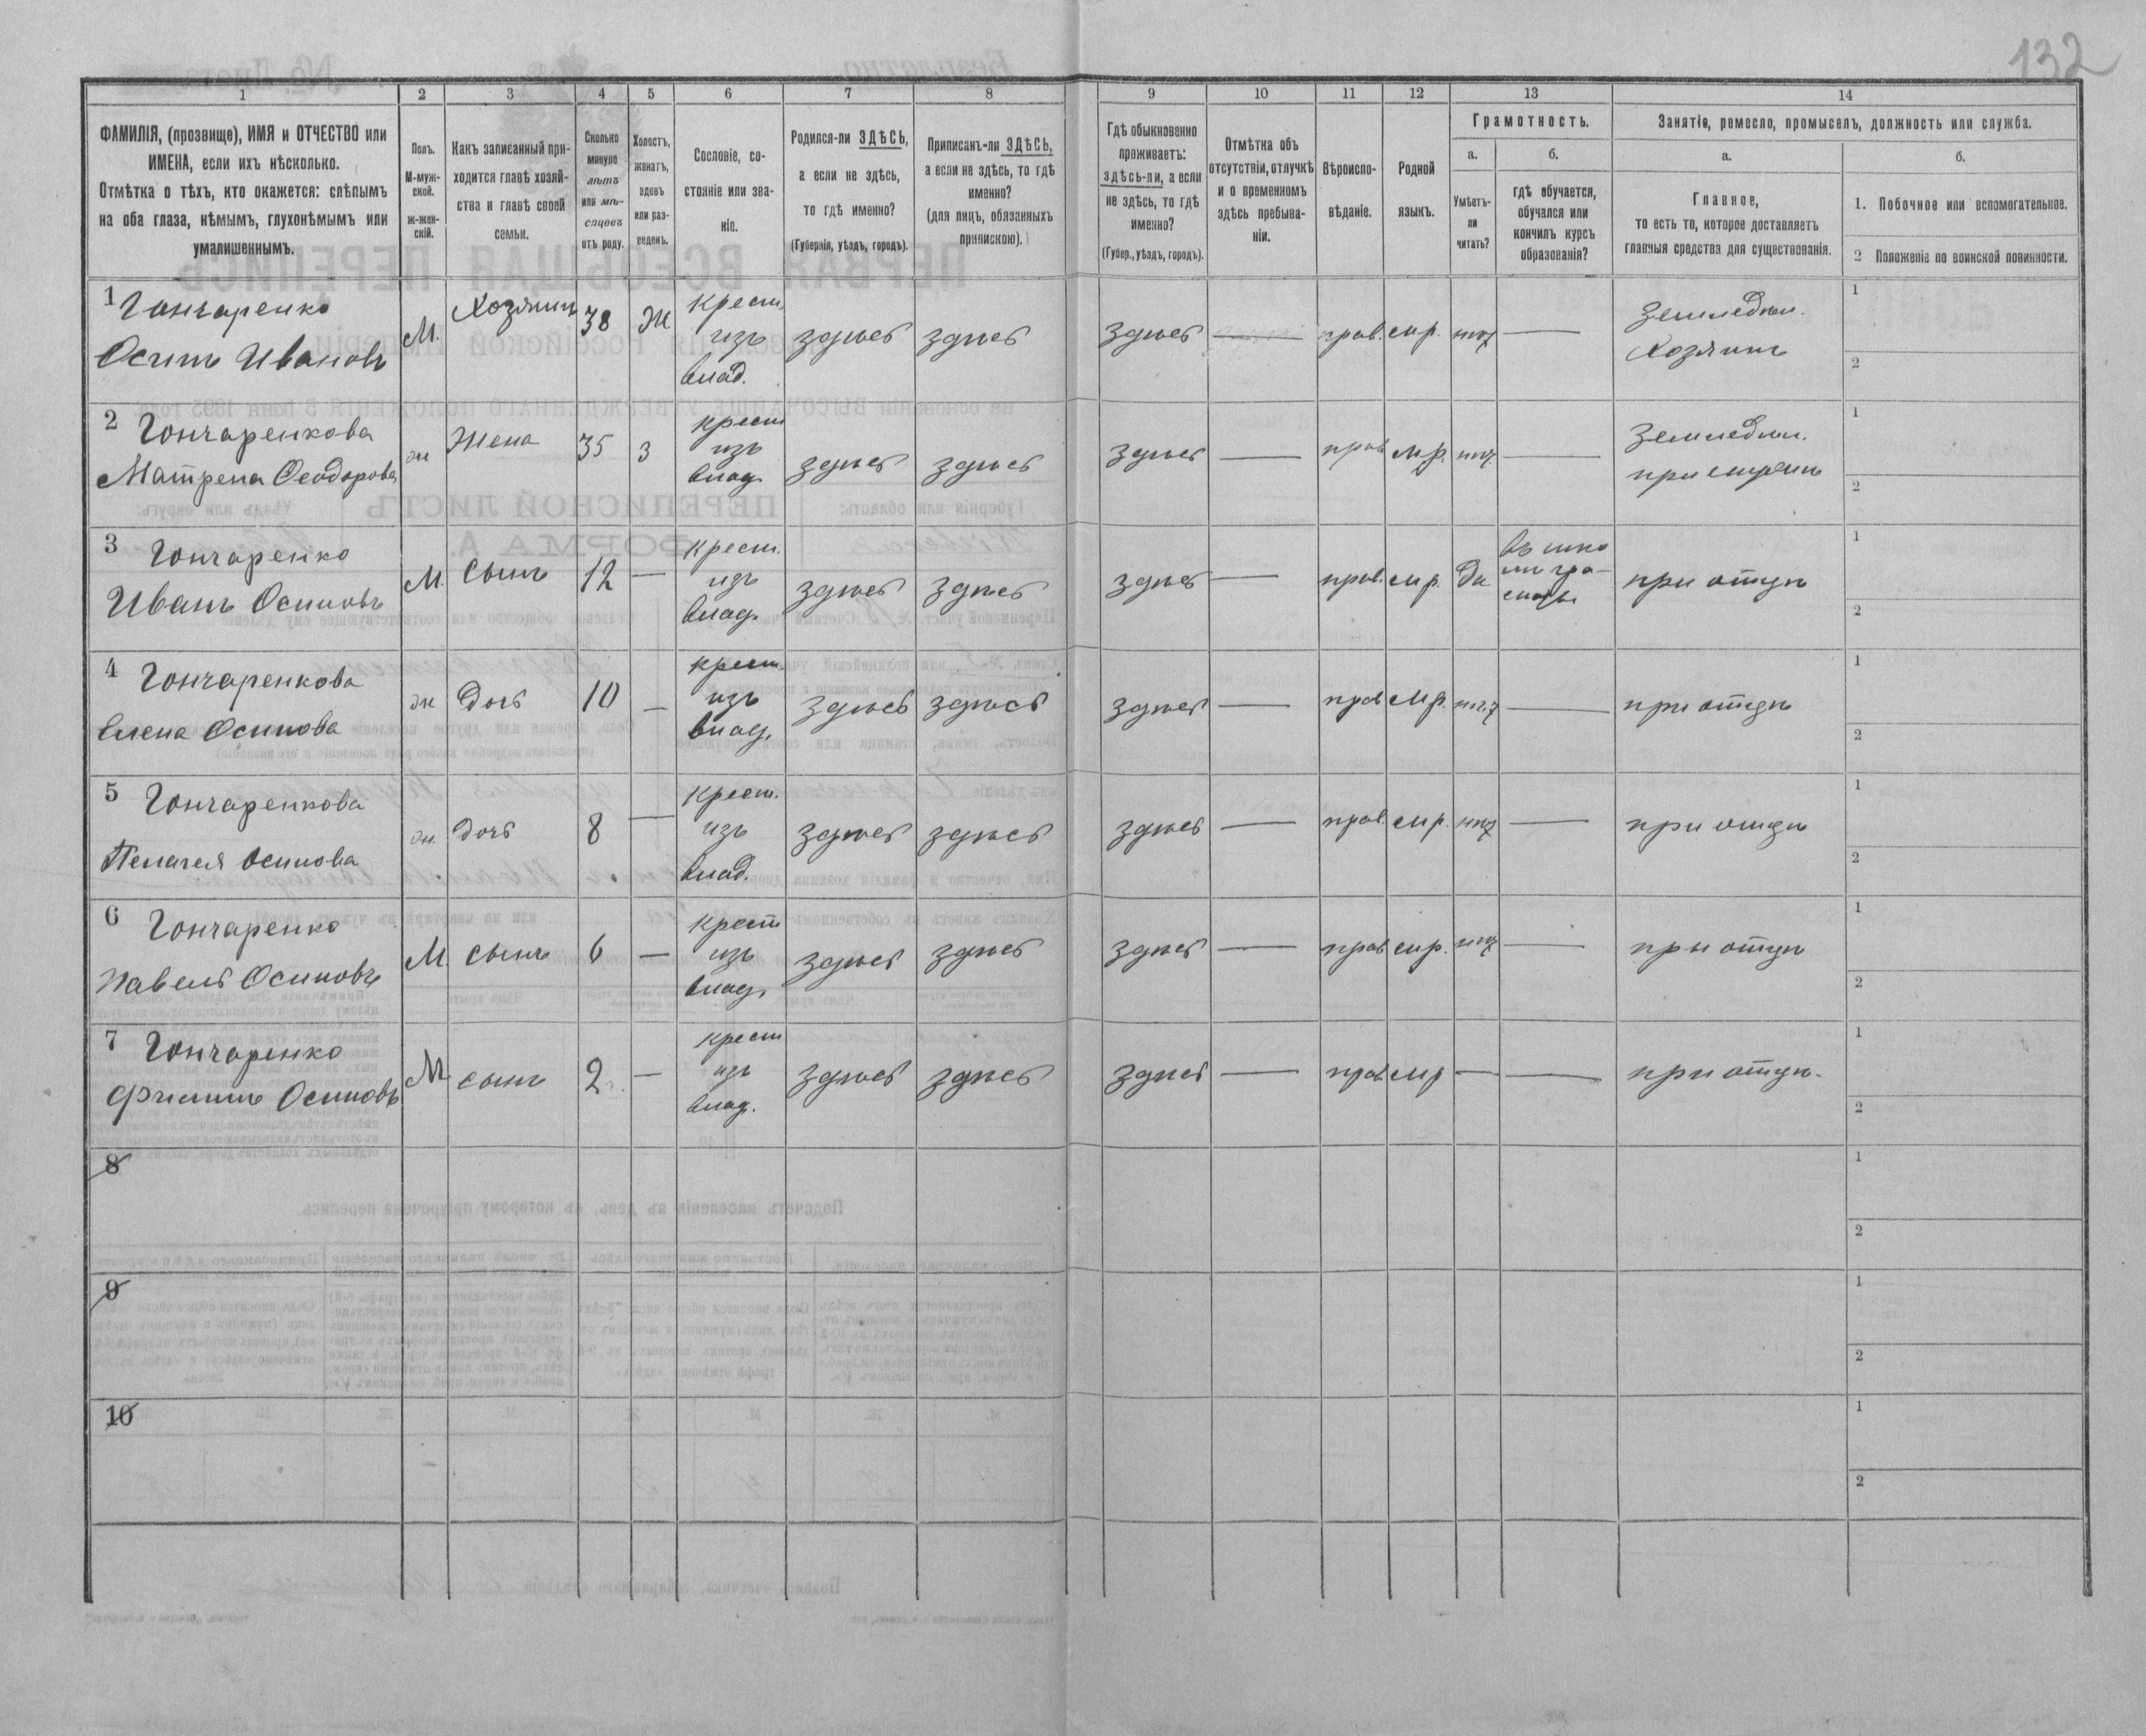 132
1
2
3
4
5
6
7
8
9
10
11
12
13
14
ФАМИЛІЯ, (прозвище), ИМЯ и ОТЧЕСТВО или
ИМЕНА, если ихъ нѣсколько.
Отмѣтка о тѣхъ, кто окажется: слѣпымъ
на оба глаза, нѣмымъ, глухонѣмымъ или
умалишеннымъ.
Полъ.
М-муж-
ской.
ж-жен-
скій.
Какъ записанный при-
ходится главѣ хозяй-
ства и главѣ своей
семьи.
Сколько
минуло
лѣтъ
или мѣ-
сяцевъ
отъ роду.
Холостъ,
женатъ,
вдовъ
или раз-
веденъ.
Сословіе, со-
стояніе или зва-
ніе.
Родился-ли ЗДѢСЬ,
а если не здѣсь,
то гдѣ именно?
(Губернія, уѣздъ, городъ).
Приписанъ-ли ЗДѢСЬ,
а если не здѣсь, то гдѣ
именно?
(для лицъ, обязанныхъ
припискою).
Гдѣ обыкновенно
проживаетъ:
здѣсь-ли, а если
не здѣсь, то гдѣ
именно?
(Губер., уѣздъ, городъ).
Отмѣтка объ
отсутствіи, отлучкѣ
и о временномъ
здѣсь пребыва-
ніи.
Вѣроиспо-
вѣданіе.
Родной
языкъ.
Грамотность.
а.
Умѣетъ-
ли
читать?
б.
гдѣ обучается,
обучался или
кончилъ курсъ
образованія?
Занятіе, ремесло, промыселъ, должность или служба.
а.
Главное,
то есть то, которое доставляетъ
главныя средства для существованія.
б.
1. Побочное или вспомогательное.
2 Положеніе по воинской повинности.
1 Гончаренко
Осипъ Ивановъ
М. Хозяинъ 38 Ж. крест. изъ влад. здѣсь здѣсь здѣсь — прав. мр. нѣт — Земледѣл. Хозяинъ 1 2
2 Гончаренкова
Матрена Феодорова
ж Жена 35 З крест изъ влад. здѣсь здѣсь здѣсь — прав мр. нѣт — Земледѣл. 1 2
3 Гончаренко
Иванъ Осиповъ
М. Сынъ 12 — крест. изъ влад. здѣсь здѣсь здѣсь — прав. мр. да при отцѣ 1 2
4 Гончаренкова
Елена Осипова
ж Дочь 10 — крест. изъ влад. здѣсь здѣсь здѣсь — прав мр. нѣт — при отцѣ 1 2
5 Гончаренкова
Пелагея Осипова
ж. дочь 8 — крест. изъ влад. здѣсь здѣсь здѣсь — прав. мр. нѣт — при отцѣ 1 2
6 Гончаренко
Павелъ Осиповъ
М. сынъ 6 — крест изъ влад. здѣсь здѣсь здѣсь — прав мр. нѣт — при отцѣ 1 2
7 Гончаренко
Филипъ Осиповъ
М. сынъ 2 — крест изъ влад. здѣсь здѣсь здѣсь — прав мр — — при отцѣ. 1 2
8 1 2
9 1 2
10 1 2